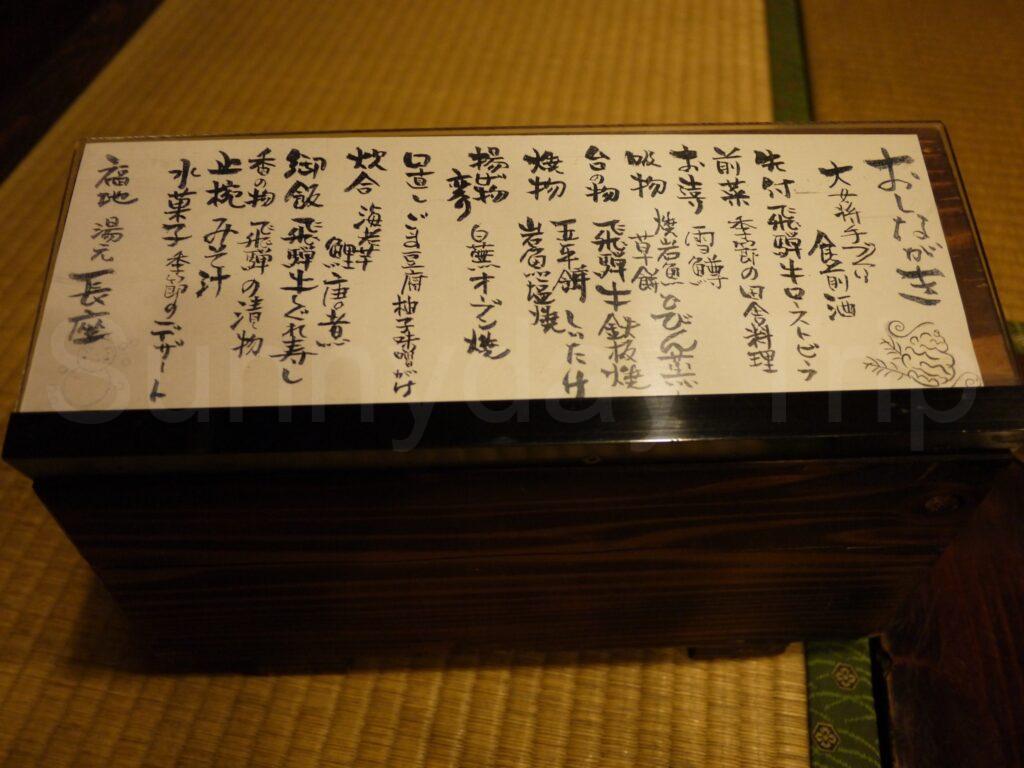 おしながき
大女将手づくり
食前酒
先付 飛騨牛ローストビーフ
前菜 季節の田舎料理
お造り 雪鱒
吸物 焼岩魚 ひでん葉
草餅
台の物 飛騨牛鉄板焼
五平餅 しいたけ
焼物 岩魚塩焼
揚物
変り 白蕪オーブン焼
口直し ごま豆腐 柚子味噌がけ
炊合 海老芋
鯉唐煮
御飯 飛騨牛しぐれ寿し
香の物 飛騨の漬物
止椀 みそ汁
水菓子 季節のデザート
福地 湯元 長座
Sunnyday Trip